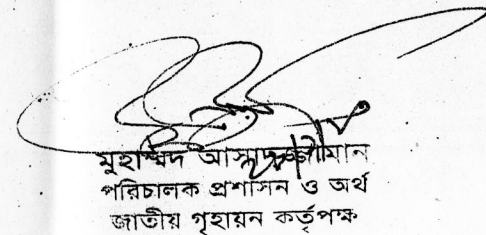 মুহাম্মদ আসাদুজ্জামান
পরিচালক প্রশাসন ও অর্থ
জাতীয় গৃহায়ন কর্তৃপক্ষ